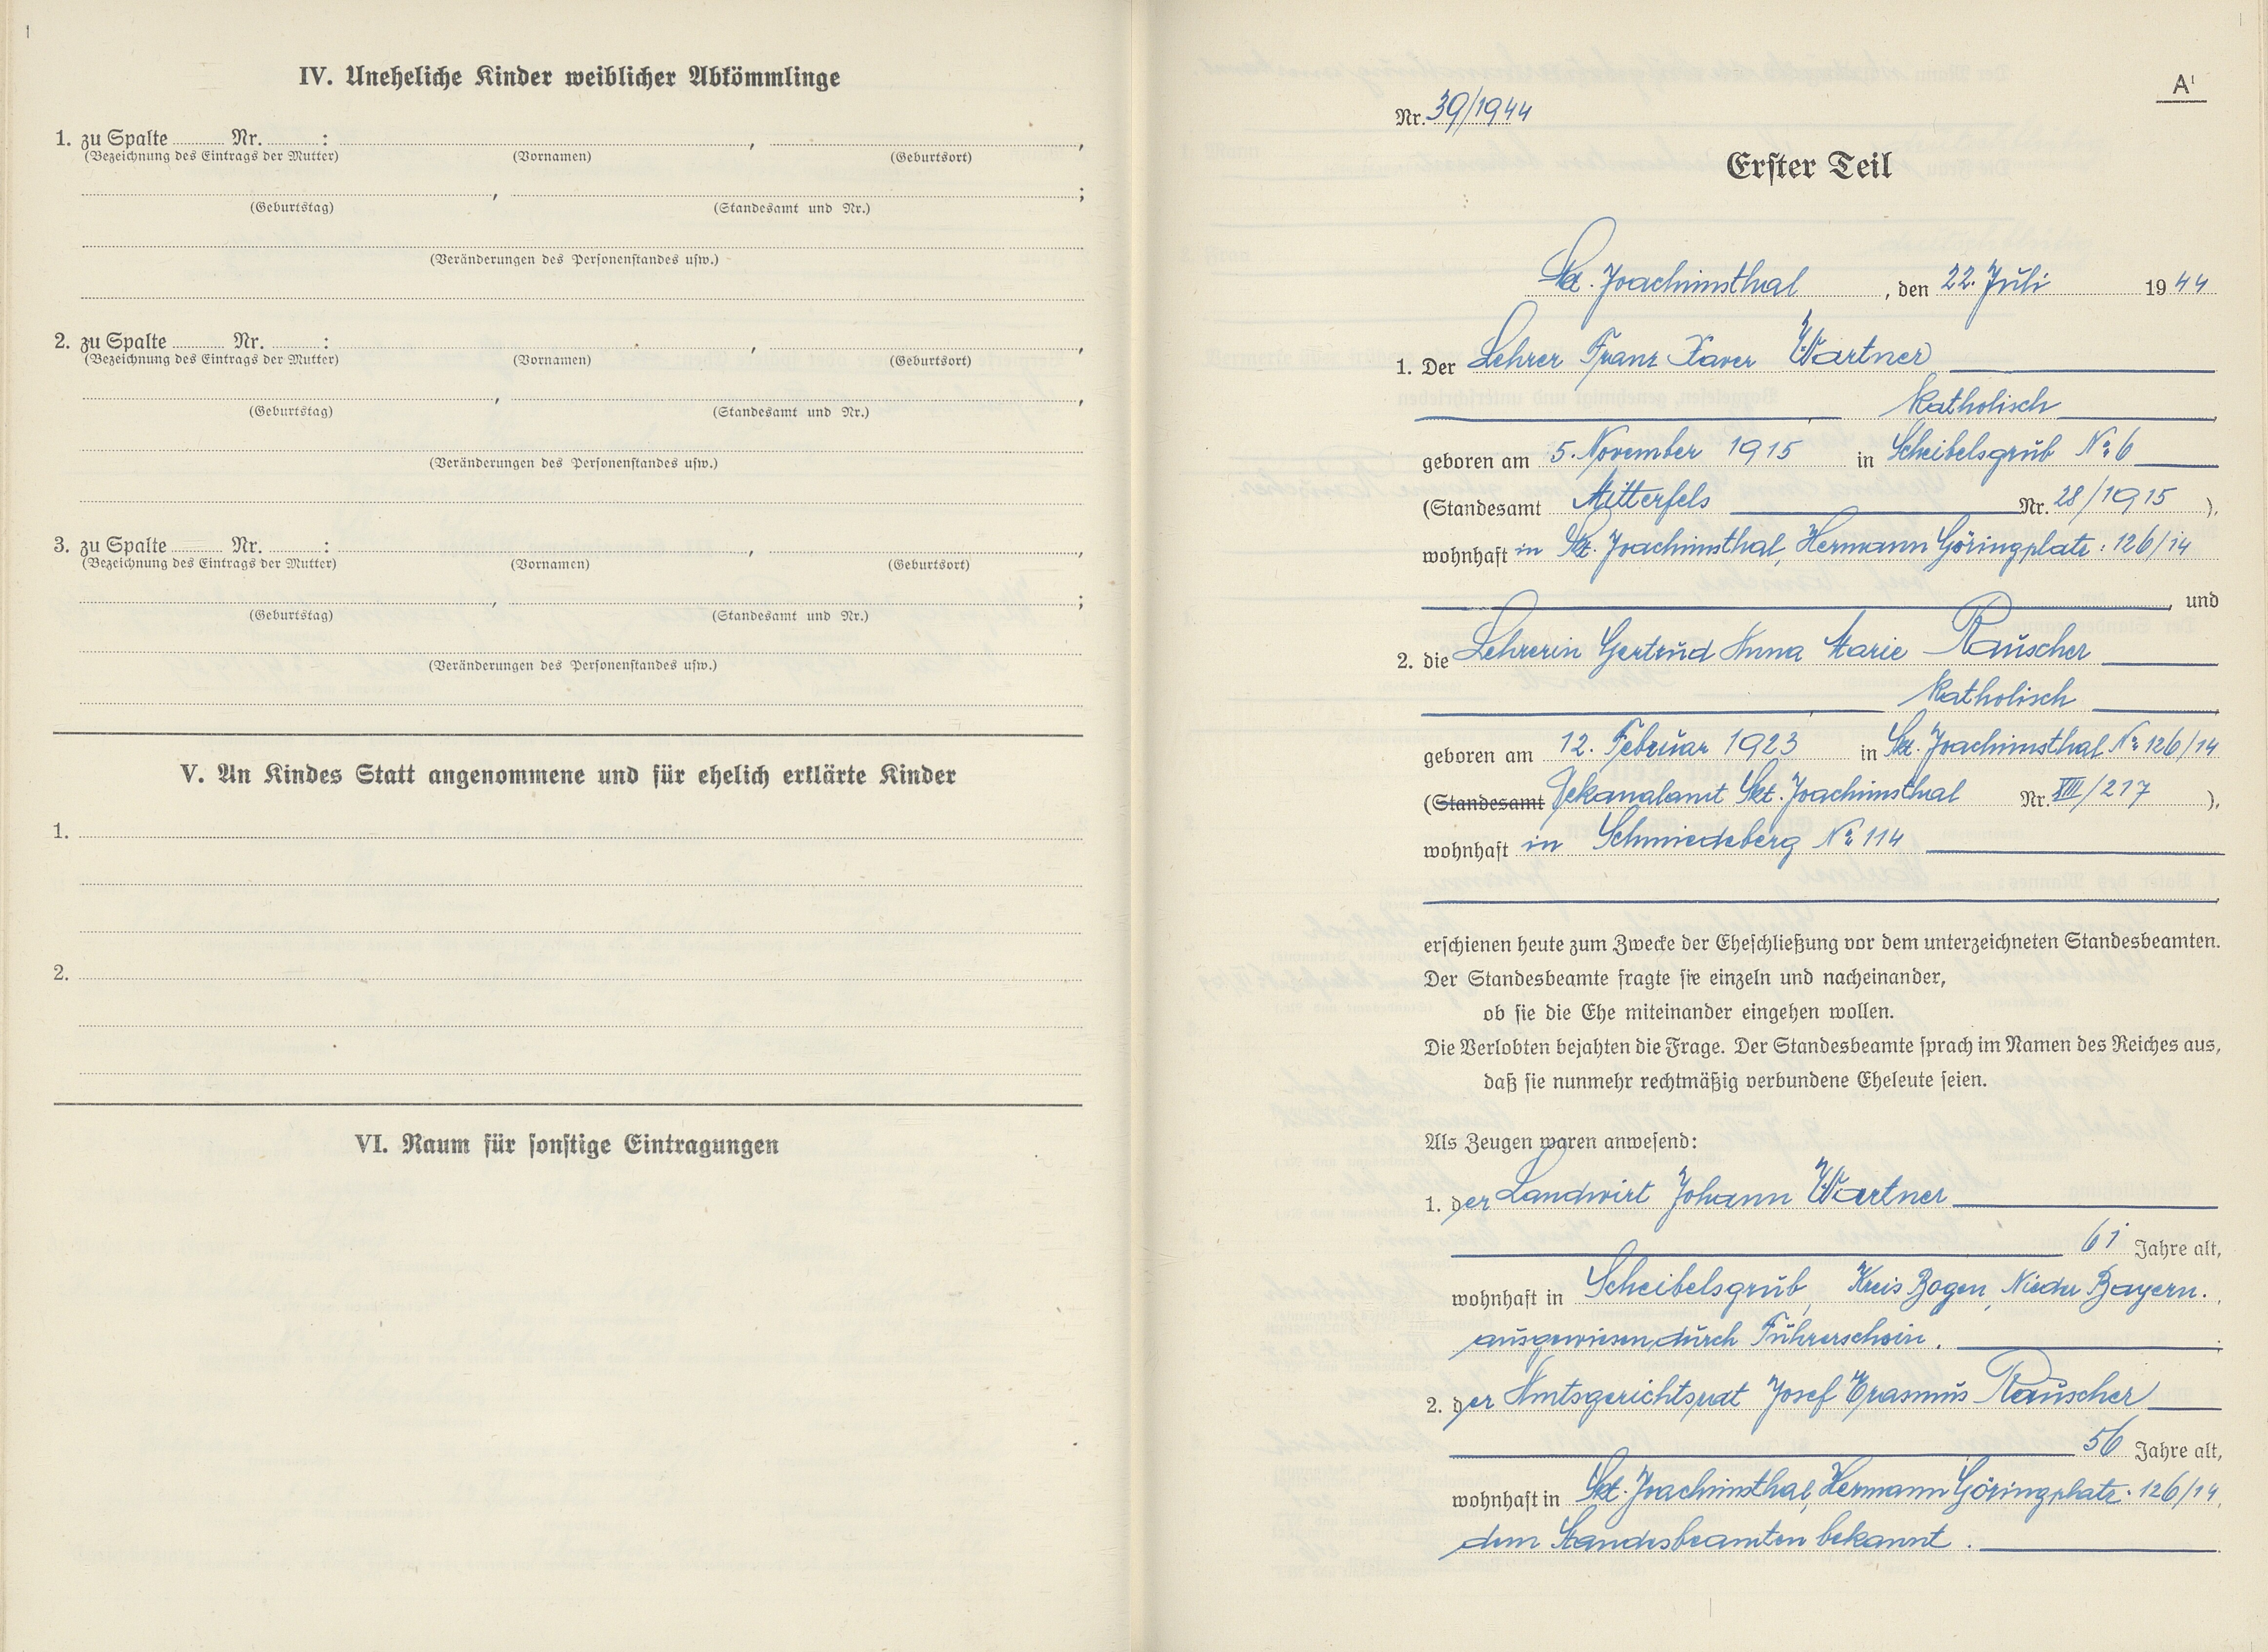 IV. Uneheliche Kinder weiblicher Abkömmlinge
1. zu Spalte ........ Nr. ........ : , ,
(Bezeichnung des Eintrags der Mutter) (Vornamen) (Geburtsort)
, ;
(Geburtstag) (Standesamt und Nr.)
(Veränderungen des Personenstandes usw.)
2. zu Spalte ........ Nr. ........ : , ,
(Bezeichnung des Eintrags der Mutter) (Vornamen) (Geburtsort)
, ,
(Geburtstag) (Standesamt und Nr.)
(Veränderungen des Personenstandes usw.)
3. zu Spalte ........ Nr. ........ : , ,
(Bezeichnung des Eintrags der Mutter) (Vornamen) (Geburtsort)
, ;
(Geburtstag) (Standesamt und Nr.)
(Veränderungen des Personenstandes usw.)
V. An Kindes Statt angenommene und für ehelich erklärte Kinder
1.
2.
VI. Raum für sonstige Eintragungen
A¹
Nr. 39/1944
Erster Teil
Skt. Joachimsthal, den 22. Juli 1944
1. Der Lehrer Franz Xaver Wartner
katholisch,
geboren am 5. November 1915 in Scheibelsgrub No 6
(Standesamt Mitterfels Nr. 28/1915),
wohnhaft in Skt. Joachimsthal, Hermann Göringplatz: 126/14
, und
2. die Lehrerin Gertrud Anna Marie Rauscher
katholisch,
geboren am 12. Februar 1923 in Skt. Joachimsthal No 126/14
(Standesamt Dekanalamt Skt. Joachimsthal Nr. XIII/217),
wohnhaft in Schmiedeberg No 114
erschienen heute zum Zwecke der Eheschließung vor dem unterzeichneten Standesbeamten.
Der Standesbeamte fragte sie einzeln und nacheinander,
ob sie die Ehe miteinander eingehen wollen.
Die Verlobten bejahten die Frage. Der Standesbeamte sprach im Namen des Reiches aus,
daß sie nunmehr rechtmäßig verbundene Eheleute seien.
Als Zeugen waren anwesend:
1. der Landwirt Johann Wartner
61 Jahre alt,
wohnhaft in Scheibelsgrub, Kreis Bogen, Nieder Bayern.,
ausgewiesen durch Führerschein. ;
2. der Amtsgerichtsrat Josef Erasmus Rauscher
56 Jahre alt,
wohnhaft in Skt. Joachimsthal, Hermann Göringplatz: 126/14,
dem Standesbeamten bekannt.